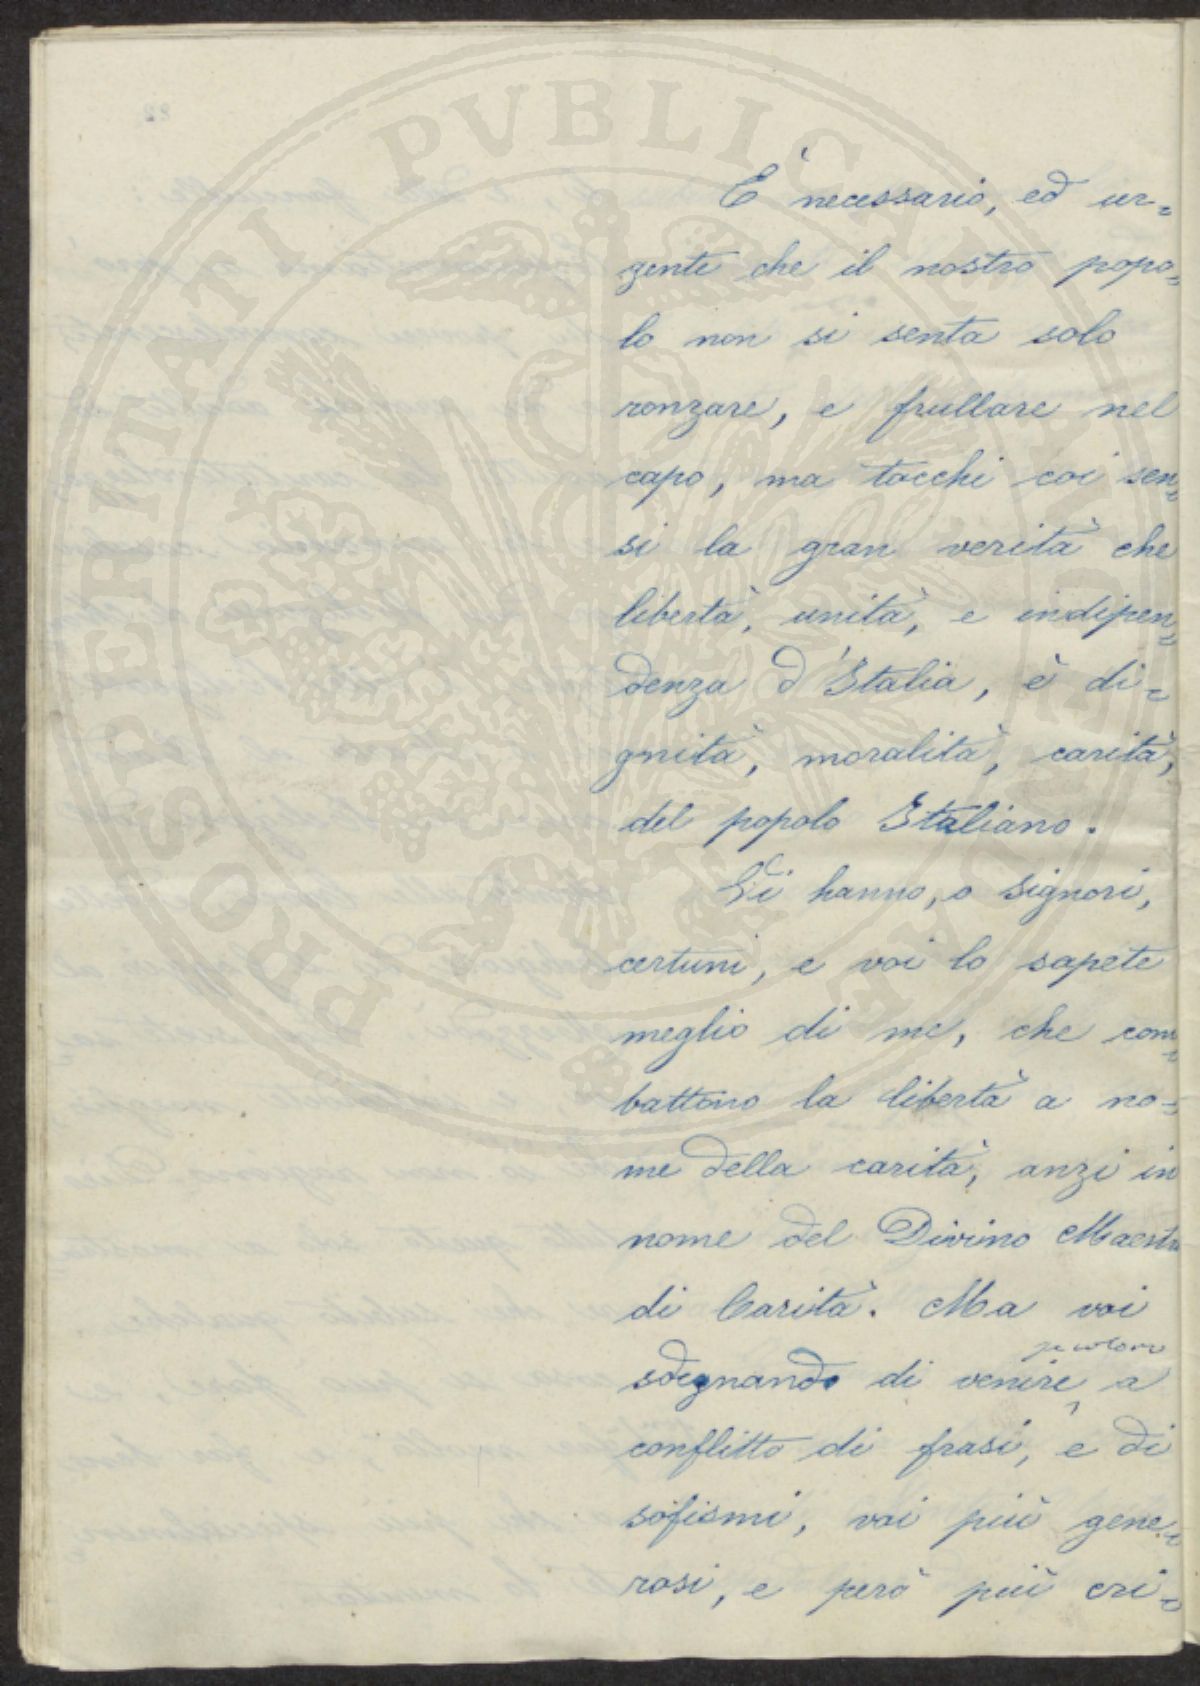 PROSPERITATI PVBLICAE
È necessario, ed ur=
gente che il nostro popo=
lo non si senta solo
ronzare, e frullare nel
capo, ma tocchi coi sen=
si la gran verità che
libertà, unità, e indipen=
denza d'Italia, è di=
gnità, moralità, carità,
del popolo Italiano.
Vi hanno, o Signori,
certuni, e voi lo sapete
meglio di me, che com=
battono la libertà a no=
me della carità, anzi in
nome del Divino Maestro
di Carità. Ma voi
sdegnando di venire a
conflitto di frasi, e di
sofismi, voi più gene=
rosi, e però più cri=